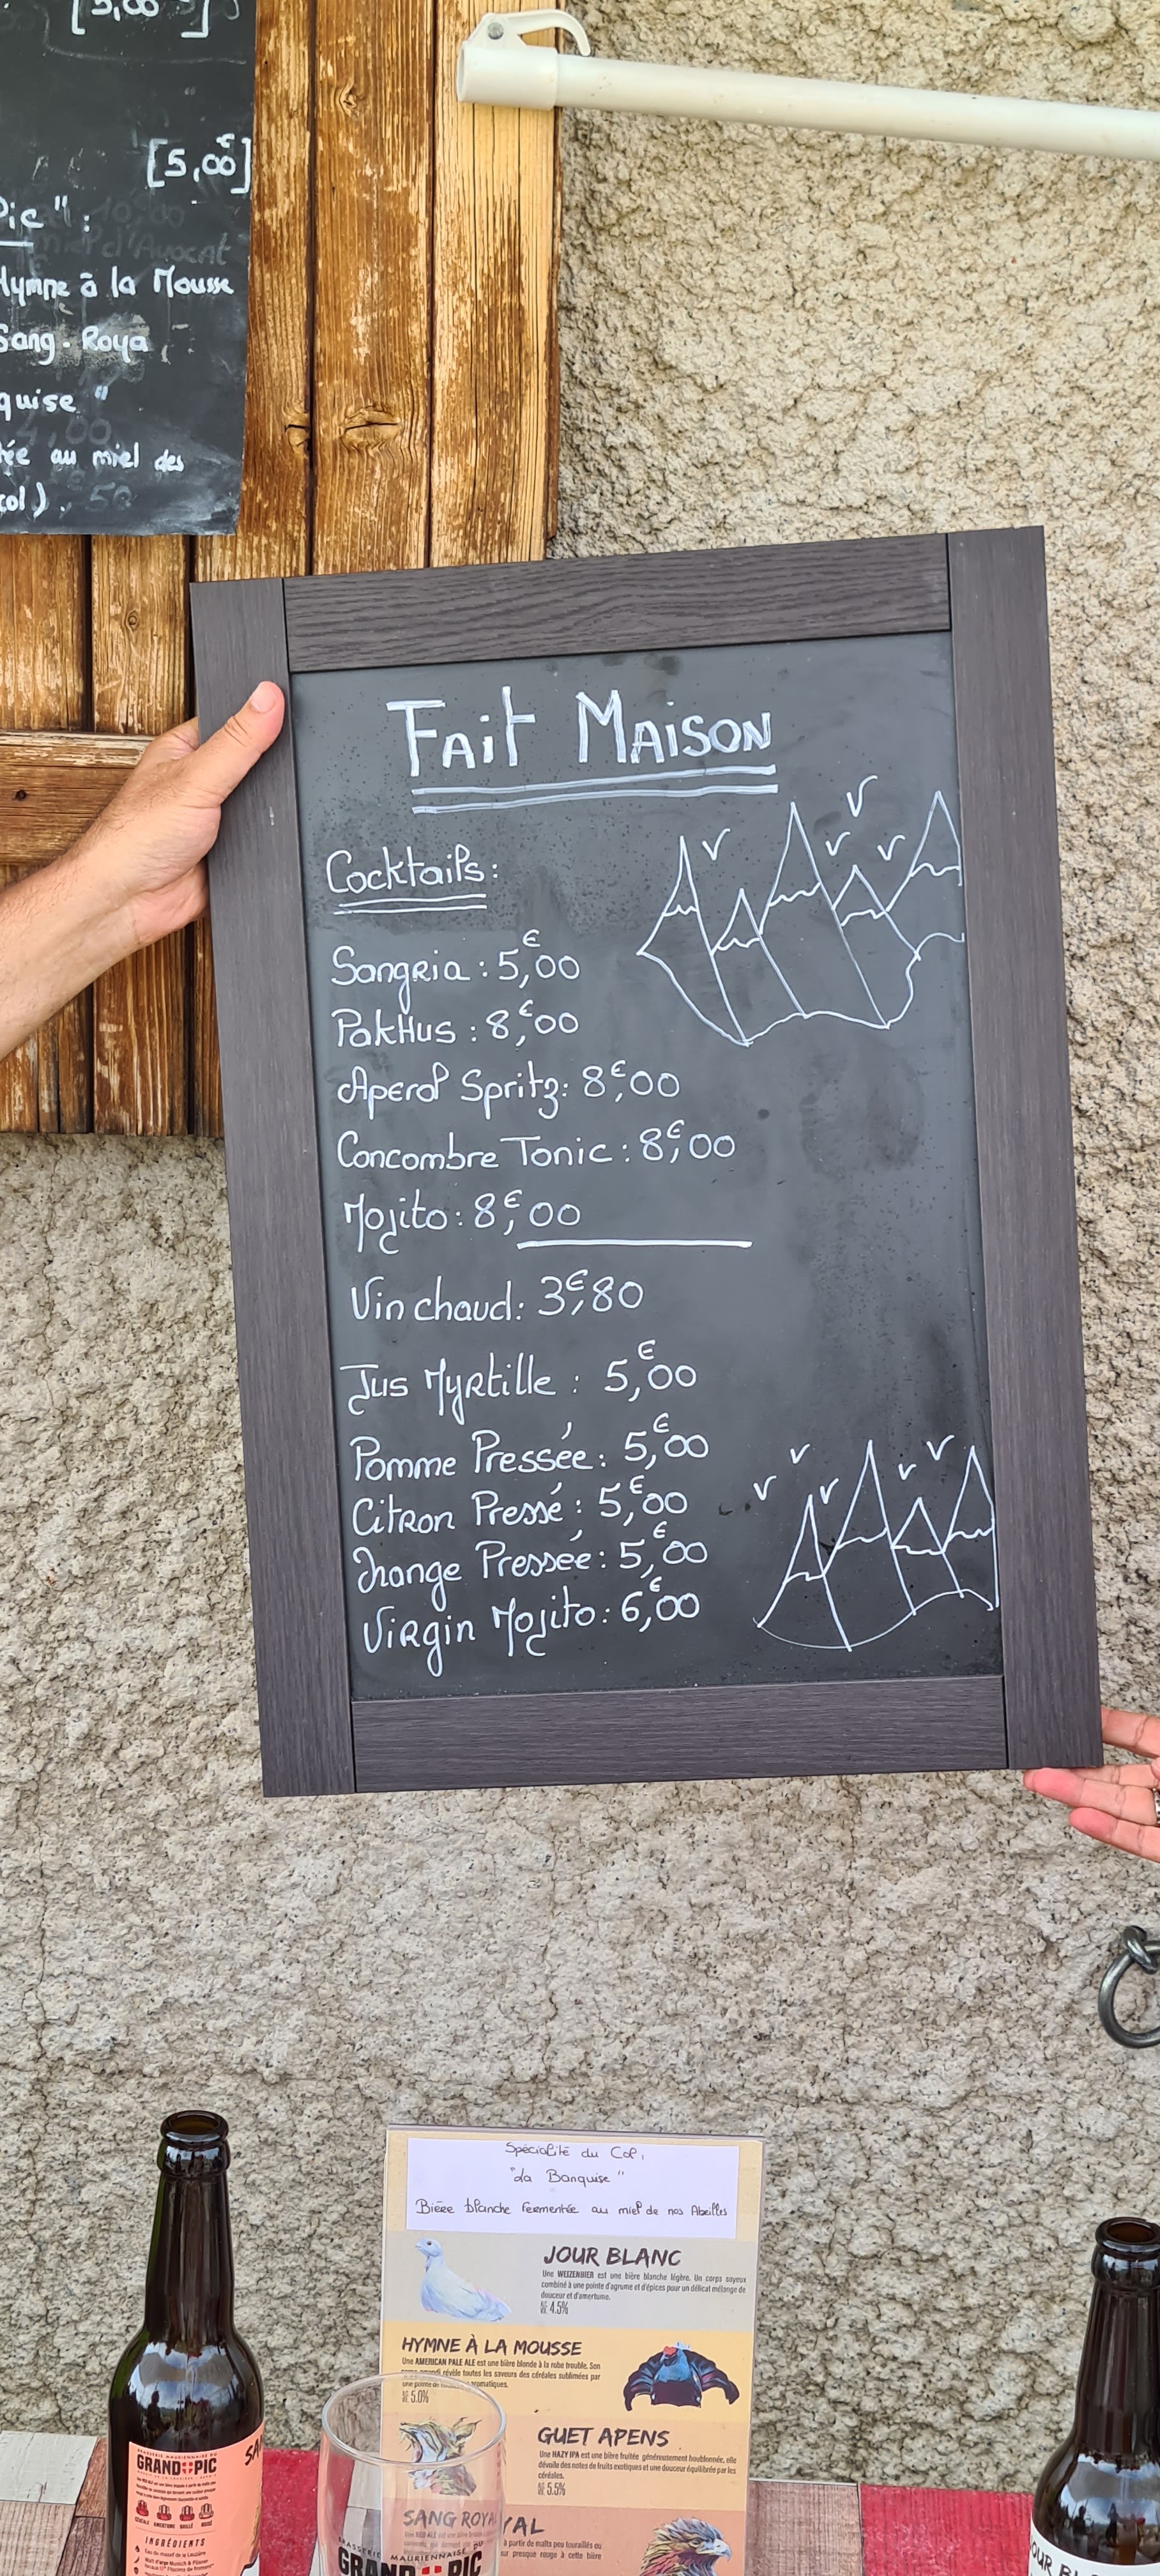 [5,00 €]
[5,00€]
Pic" :
Hymne à la Mousse
Sang-Roya
quise "
tée au miel des
col).
FAit MAiSON
Cocktails:
SangRia : 5,€00
PakHus : 8,€00
Aperol Spritz: 8,€00
Concombre Tonic : 8,€00
Mojito : 8,€00
Vin chaud: 3,€80
Jus MyRtille : 5,€00
Pomme Pressée : 5,€00
CitRon Pressé : 5,€00
Orange Pressée : 5,€00
ViRgin Mojito : 6,€00
Spécialité du Col,
"La Banquise"
Bière blanche Fermentée au miel de nos Abeilles
JOUR BLANC
Une WEIZENBIER est une bière blanche légère. Un corps soyeux
combiné à une pointe d'agrume et d'épices pour un délicat mélange de
douceur et d'amertume.
4.5%
HYMNE À LA MOUSSE
Une AMERICAN PALE ALE est une bière blonde à la robe trouble. Son
révèle toutes les saveurs des céréales sublimées par
une pointe de
5.0%
GUET APENS
Une HAZY IPA est une bière fruitée généreusement houblonnée, elle
dévoile des notes de fruits exotiques et une douceur équilibrée par les
céréales.
5.5%
SANG ROYAL
à partir de malts peu touraillés ou
presque rouge à cette bière
BRASSERIE MAURIENNAISE DU
GRAND PIC
BRASSERIE MAURIENNAISE DU
GRAND PIC
INGRÉDIENTS
SA
OUR B